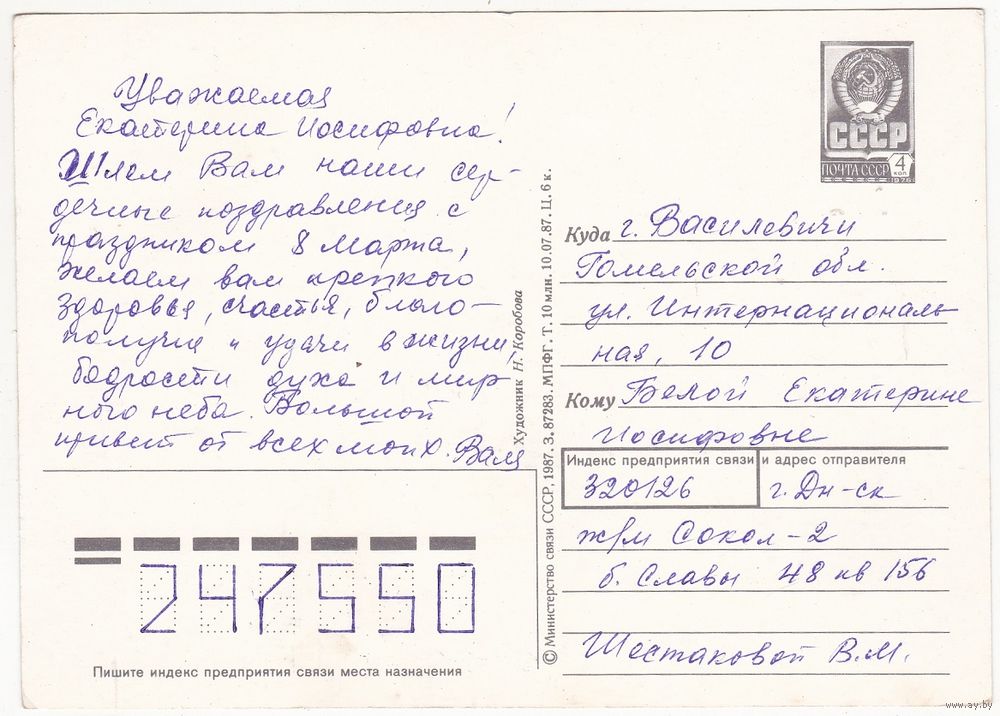 Уважаемая
Екатерина Иосифовна!
Шлем Вам наши сер-
дечные поздравления с
праздником 8 марта,
желаем вам крепкого
здоровья, счастья, благо-
получия и удачи в жизни,
бодрости духа и мир
ного неба. Большой
привет от всех моих. Валя
СССР
ПОЧТА СССР
4
коп
1976
Куда г. Василевичи
Гомельской обл.
ул. Интернациональ
ная, 10
Кому Белой Екатерине
Иосифовне
Индекс предприятия связи и адрес отправителя
320126 г. Дн-ск
ж/м Сокол-2
б. Славы 48 кв 156
Шестаковой В.М.
© Министерство связи СССР, 1987. З. 87283. МПФГ. Т. 10 млн. 10.07.87. Ц. 6 к.
Художник Н. Коробова
247550
Пишите индекс предприятия связи места назначения
www.ay.by